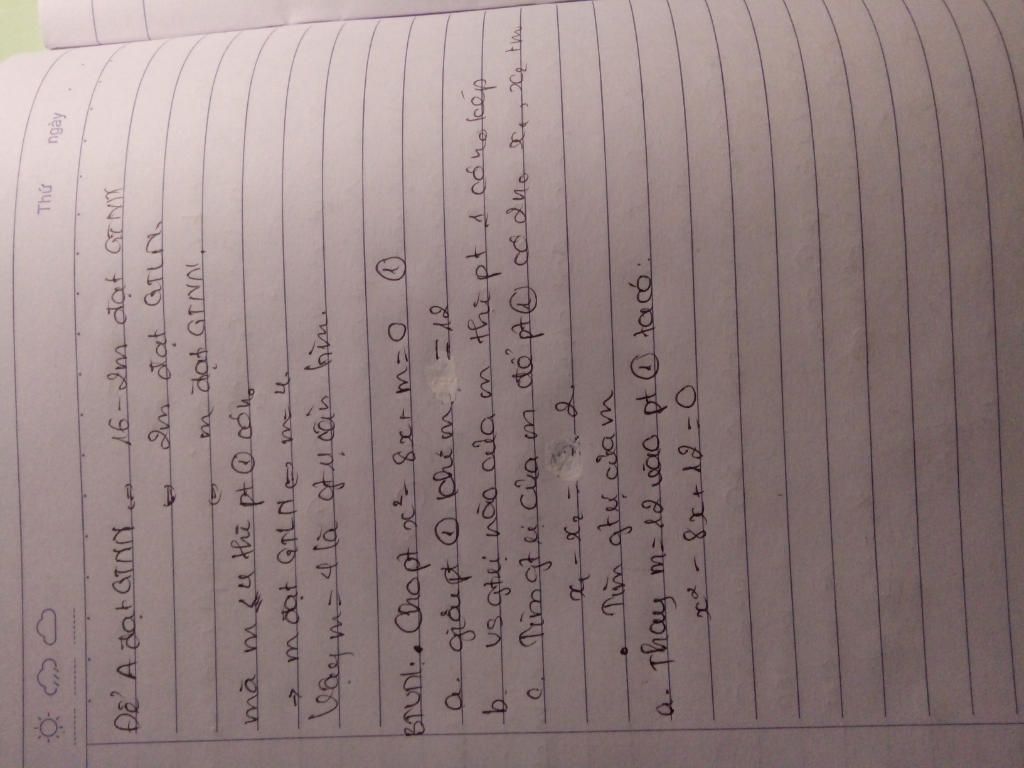 Thứ ngày
Để A đạt GTNN ⇔ 16 - 2m đạt GTNN
⇔ 2m đạt GTLN
⇔ m đạt GTNN.
mà m ≤ 4 thì pt ① có n₀
→ m đạt GTLN ⇔ m = 4
Vậy m = 4 là gtrị cần tìm.
BTVN: Cho pt x² - 8x + m = 0 ①
a. giải pt ① khi m = 12
b. Vs gtrị nào của m thì pt 1 có n₀ kép
c. Tìm gtrị của m để pt ① có 2 n₀ x₁, x₂ tm
x₁ - x₂ = 2
Tìm gtrị của m
a. Thay m = 12 vào pt ① ta có:
x² - 8x + 12 = 0